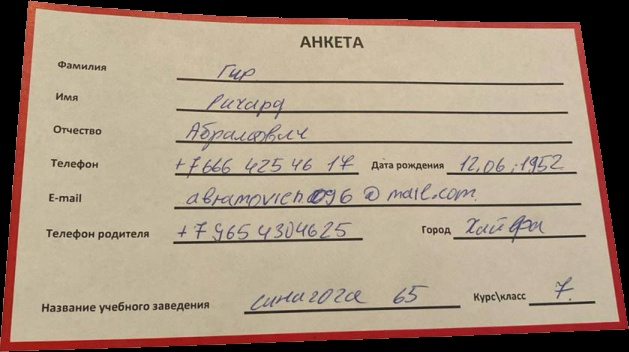 АНКЕТА
Фамилия Гир
Имя Ричард
Отчество Абрамович
Телефон +7 666 425 46 17 Дата рождения 12.06.1952
E-mail abramovich096@mail.com
Телефон родителя +7 965 4304625 Город Хайфа
Название учебного заведения синагога 65 Курс\класс 7.